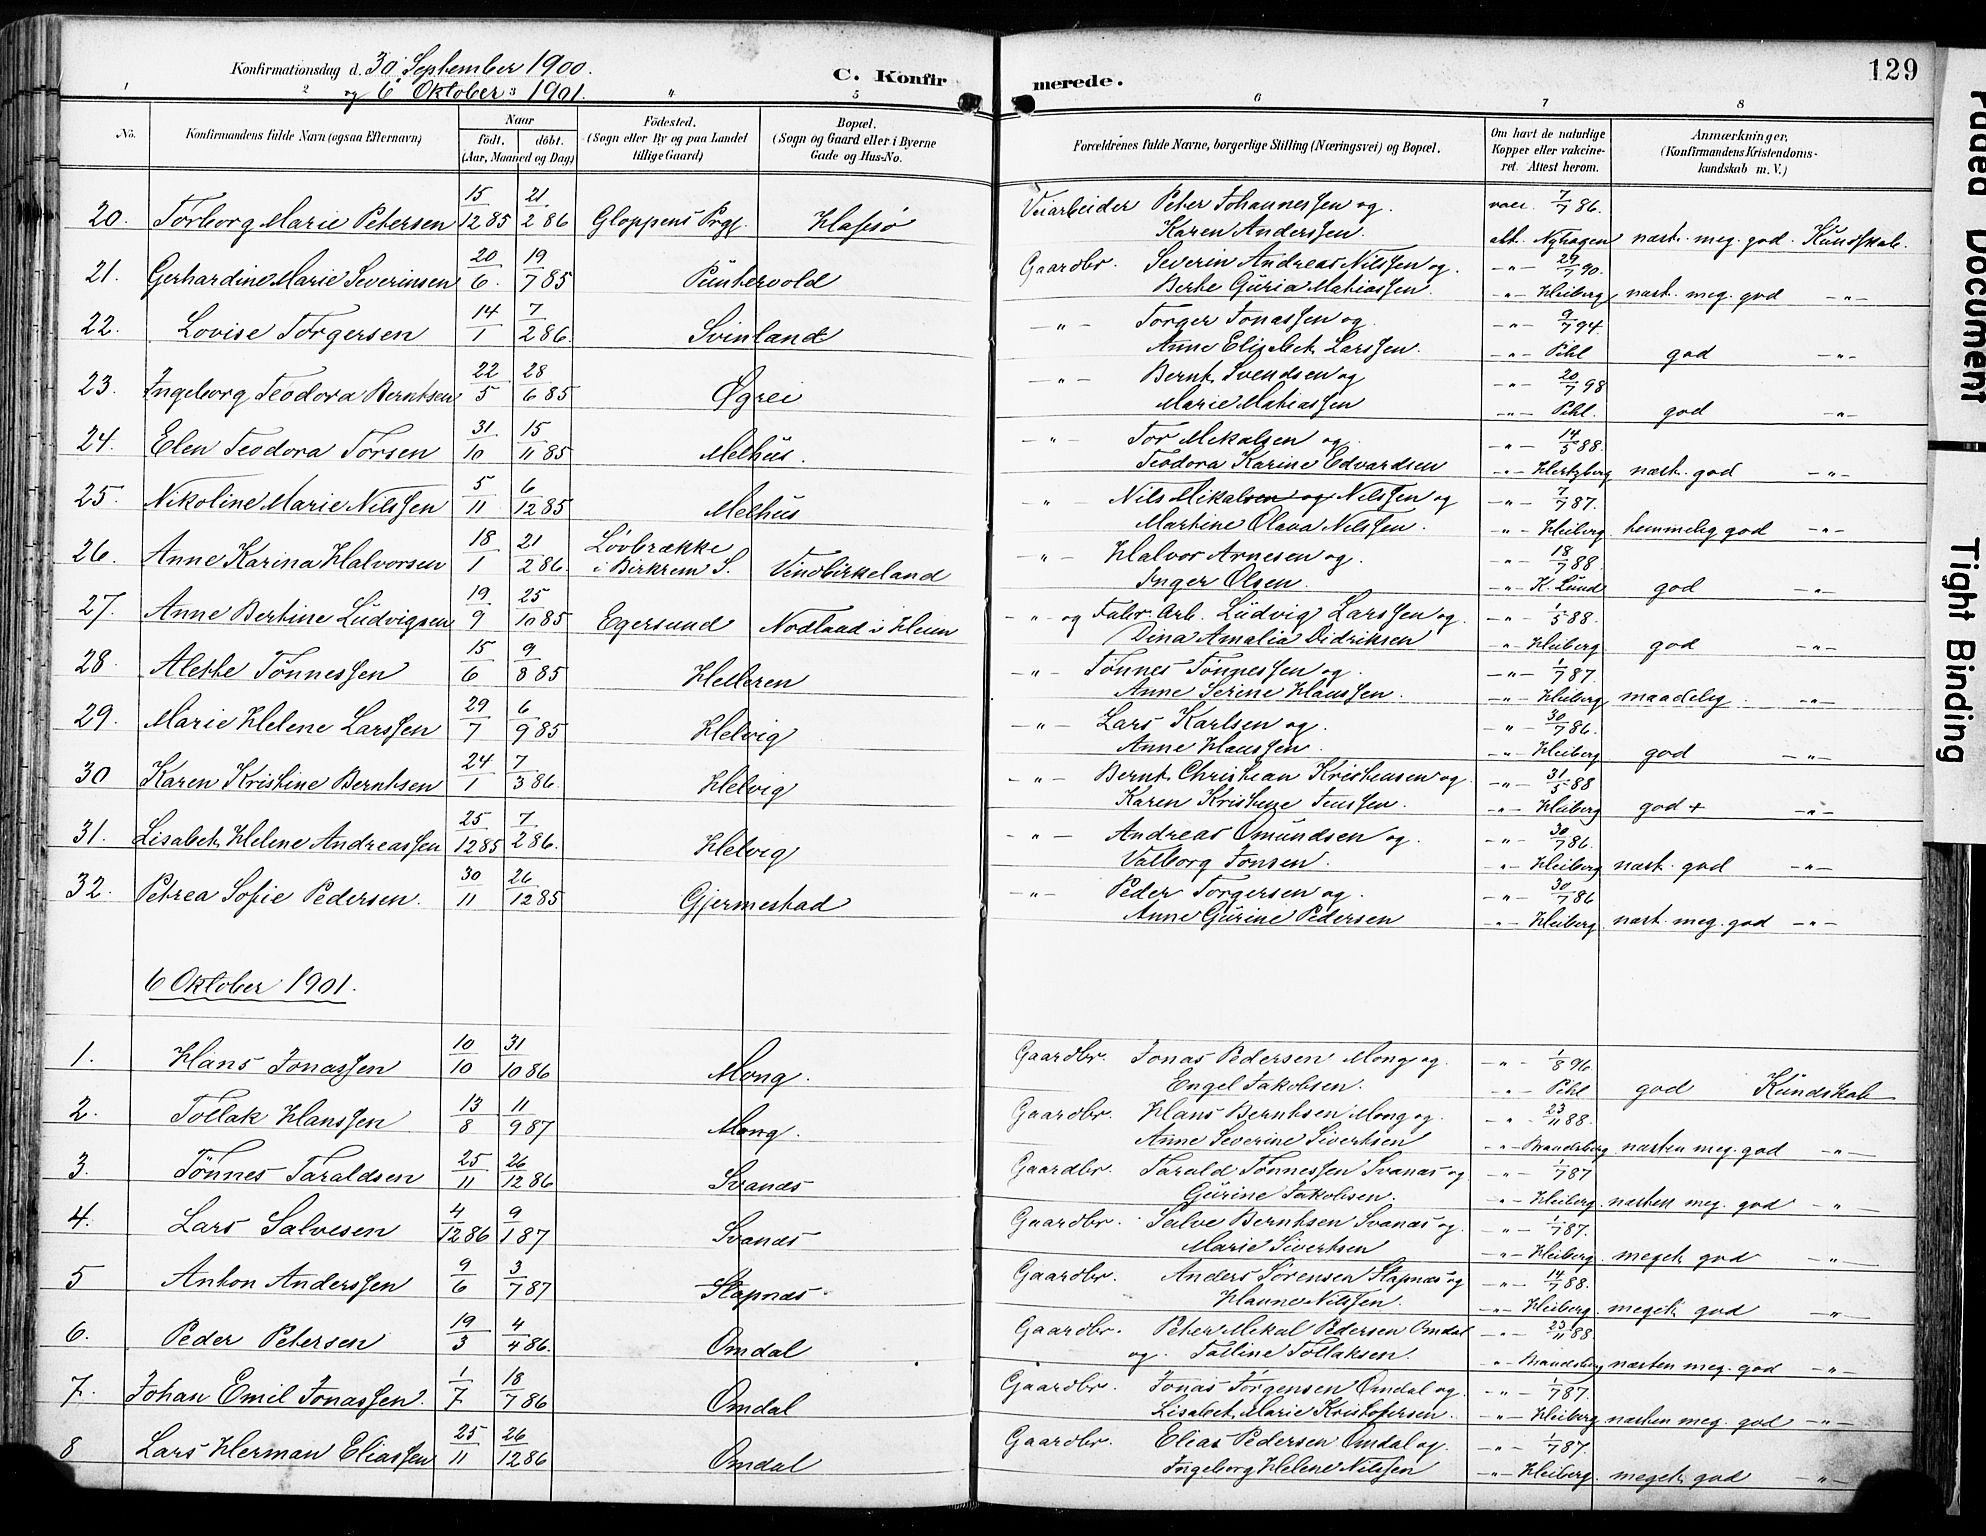 Konfirmationsdag d. 30 September 1900.
og 6 Oktober 1901.
C. Konfirmerede.
129
1 2 3 4 5 6 7 8
No. Konfirmandens fulde Navn (ogsaa Efternavn) Naar født. døbt. (Aar, Maaned og Dag) Fødested. (Sogn eller By og paa Landet tillige Gaard) Bopæl. (Sogn og Gaard eller i Byerne Gade og Hus-No. Forældrenes fulde Navne, borgerlige Stilling (Næringsvei) og Bopæl. Om havt de naturlige Kopper eller vakcineret. Attest herom. Anmærkninger, (Konfirmandens Kristendomskundskab m. V.)
20. Torborg Marie Petersen 15/12 85 21/2 86 Gloppens Prgj. Hafsø Veiarbeider Peter Johannessen og vacc. 7/7 86.
Karen Anderssen. att. Nyhagen næst. meg. god Kundskab.
21. Gerhardine Marie Severinsen 20/6 19/7 85 Puntervold Gaardbr. Severin Andreas Nilssen og -"- 29/7 90.
Berte Guria Matiassen -"- Heiberg næst. meg. god -"-
22. Lovise Torgersen 14/1 7/2 86. Svinland -"- Torger Jonassen og -"- 9/7 94.
Anne Elisabet Larssen. -"- Pihl god -"-
23. Ingeborg Teodora Berntsen 22/5 28/6 85 Øgrei -"- Bernt Svendsen og -"- 20/7 98
Marie Matiassen -"- Pihl. god -"-
24. Elen Teodora Torsen 31/10 15/11 85 Melhus. -"- Tor Mikalsen og -"- 14/5 88.
Teodora Karine Edvardsen -"- Hertzberg næst. god -"-
25. Nikoline Marie Nilssen 5/11 6/12 85 Melhus " Nils Mikalsen og Nilssen og -"- 7/7 87.
Martine Olava Nilssen. -"- Heiberg temmelig god -"-
26. Anne Karina Halvorsen 18/1 21/2 86. Løvbrække i Birkrem S. Vindbirkeland -"- Halvor Arnesen og -"- 18/7 88.
Inger Olsen. -"- K. Lund god -"-
27. Anne Bertine Ludvigsen 19/9 25/10 85 Egersund Nodland i Heien -"- og Fabr. Arb. Ludvig Larssen og -"- 1/5 88.
Dina Amalia Didriksen -"- Heiberg god -"-
28. Alette Tønnessen 15/6 9/8 85 Helleren -"- Tønnes Tønnessen og -"- 1/7 87.
Anne Serine Hanssen. -"- Heiberg maadelig. -"-
29. Marie Helene Larssen 29/7 6/9 85 Helvig -"- Lars Karlsen og -"- 30/7 86.
Anne Hanssen. -"- Heiberg god -"-
30 Karen Kristine Berntsen 24/1 7/3 86. Helvig -"- Bernt Christian Kristensen og -"- 31/5 88
Karen Kristine Jenssen. -"- Heiberg god + -"-
31. Lisabet Helene Andreassen 25/12 85 7/2 86. Helvig -"- Andreas Omundsen og -"- 30/7 86.
Valborg Jonsen. -"- Heiberg næst. god -"-
32. Petrea Sofie Pedersen. 30/11 26/12 85 Gjermestad -"- Peder Torgersen og -"- 30/7 86
Anne Gurine Pedersen -"- Heiberg næst. meg. god -"-
6 Oktober 1901.
1. Hans Jonassen 10/10 31/10 86 Mong. Gaardbr. Jonas Pedersen Mong og -"- 1/8 96.
Engel Jakobsen. -"- Pihl god Kundskab
2. Tollak Hanssen 13/8 11/9 87 Mong. Gaardbr. Hans Berntsen Mong og -"- 23/11 88.
Anne Severine Sivertsen -"- Brandsberg næsten meg. god -"-
3. Tønnes Taraldsen 25/11 26/12 86 Svanæs Gaardbr. Tarald Tønnessen Svanæs og -"- 1/7 87
Gurine Jakobsen. -"- Heiberg næsten meg. god -"-
4. Lars Salvesen 4/12 86 9/1 87 Svanæs Gaardbr. Salve Berntsen Svanæs og -"- 1/7 87.
Marie Sivertsen -"- Heiberg meget god -"-
5 Anton Anderssen 9/6 3/7 87 Stapnæs. Gaardbr. Anders Sørensen Stapnæs og -"- 14/7 88.
Hanne Nilssen. -"- Heiberg. meget god -"-
6. Peder Petersen 19/3 4/4 86. Omdal Gaardbr. Peter Mikal Pedersen Omdal -"- 23/11 88.
og Talline Tollaksen. -"- Brandsberg næsten meg. god -"-
7. Johan Emil Jonassen. 1/7 18/7 86 Omdal Gaardbr. Jonas Jørgensen Omdal og -"- 1/7 87.
Lisabet Marie Kristofersen. -"- Heiberg næsten meg. god -"-
8 Lars Herman Eliassen 25/11 26/12 86 Omdal Gaardbr. Elias Pedersen Omdal og -"- 1/7 87.
Ingeborg Helene Nilssen -"- Heiberg. meget god -"-
Faded Document
Tight Binding